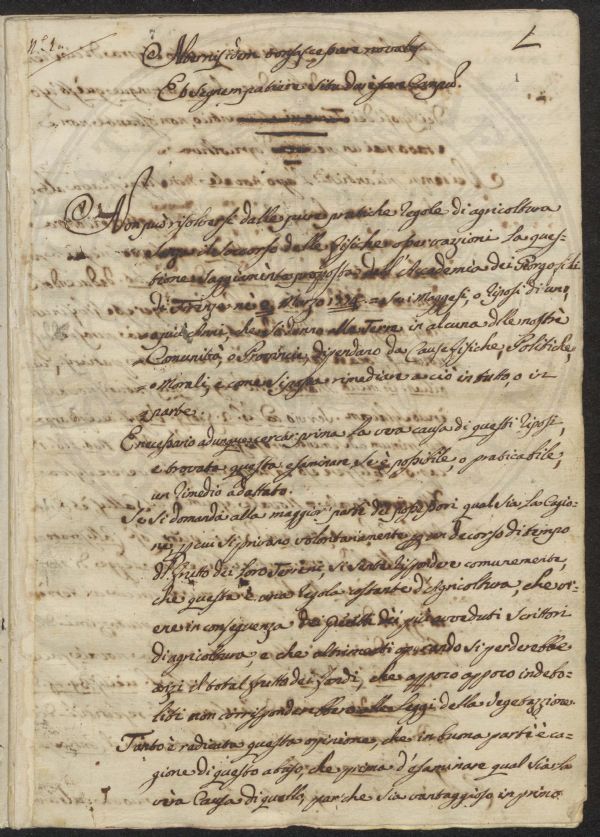 N.° 1.
1
Alternis idem tonsas cessare novales
Et segnem patiere situ durescere campum.
Non può risolversi dalle pure pratiche regole di agricoltura
senza il soccorso delle fisiche osservazioni la ques-
tione saggiamente proposta dall'Accademia dei Georgofili
di Firenze ne Marzo = Se i Maggesi, o riposi di uno,
o più Anni, che si danno alla Terra in alcuna delle nostre
Comunità, o Provincie, dipendano da Cause fisiche, Politiche,
o Morali, e come si possa rimediare a ciò in tutto, o in
parte.
E necessario adunque cercar prima la vera causa di questi riposi,
e trovata questa esaminare se è possibile, o praticabile
un rimedio adattato.
Se si domanda alla maggior parte dei possessori qual sia la Cagio-
ne, p cui si privano volontariamente p un decorso di tempo
del frutto dei loro Terreni, si sente rispondere comunemente,
che questa è una regola costante d'Agricoltura, che vi-
ene in conseguenza dei più avveduti scrittori
di agricoltura, e che altrimenti operando si perderebbe
anzi il total frutto dei fondi, che appoco appoco indebo-
liti non corrisponderebbero alle Leggi della vegetazione.
Tanto è radicata questa opinione, che in buona parte è ca-
gione di questo abuso, che prima d'esaminare qual sia la
vera Causa di quello, par che sia vantaggioso in primo